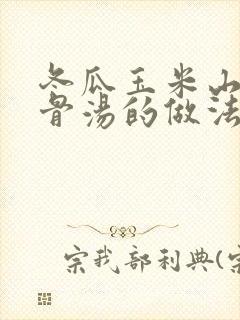 冬瓜玉米山
骨汤的做法
宗我部利典(宗